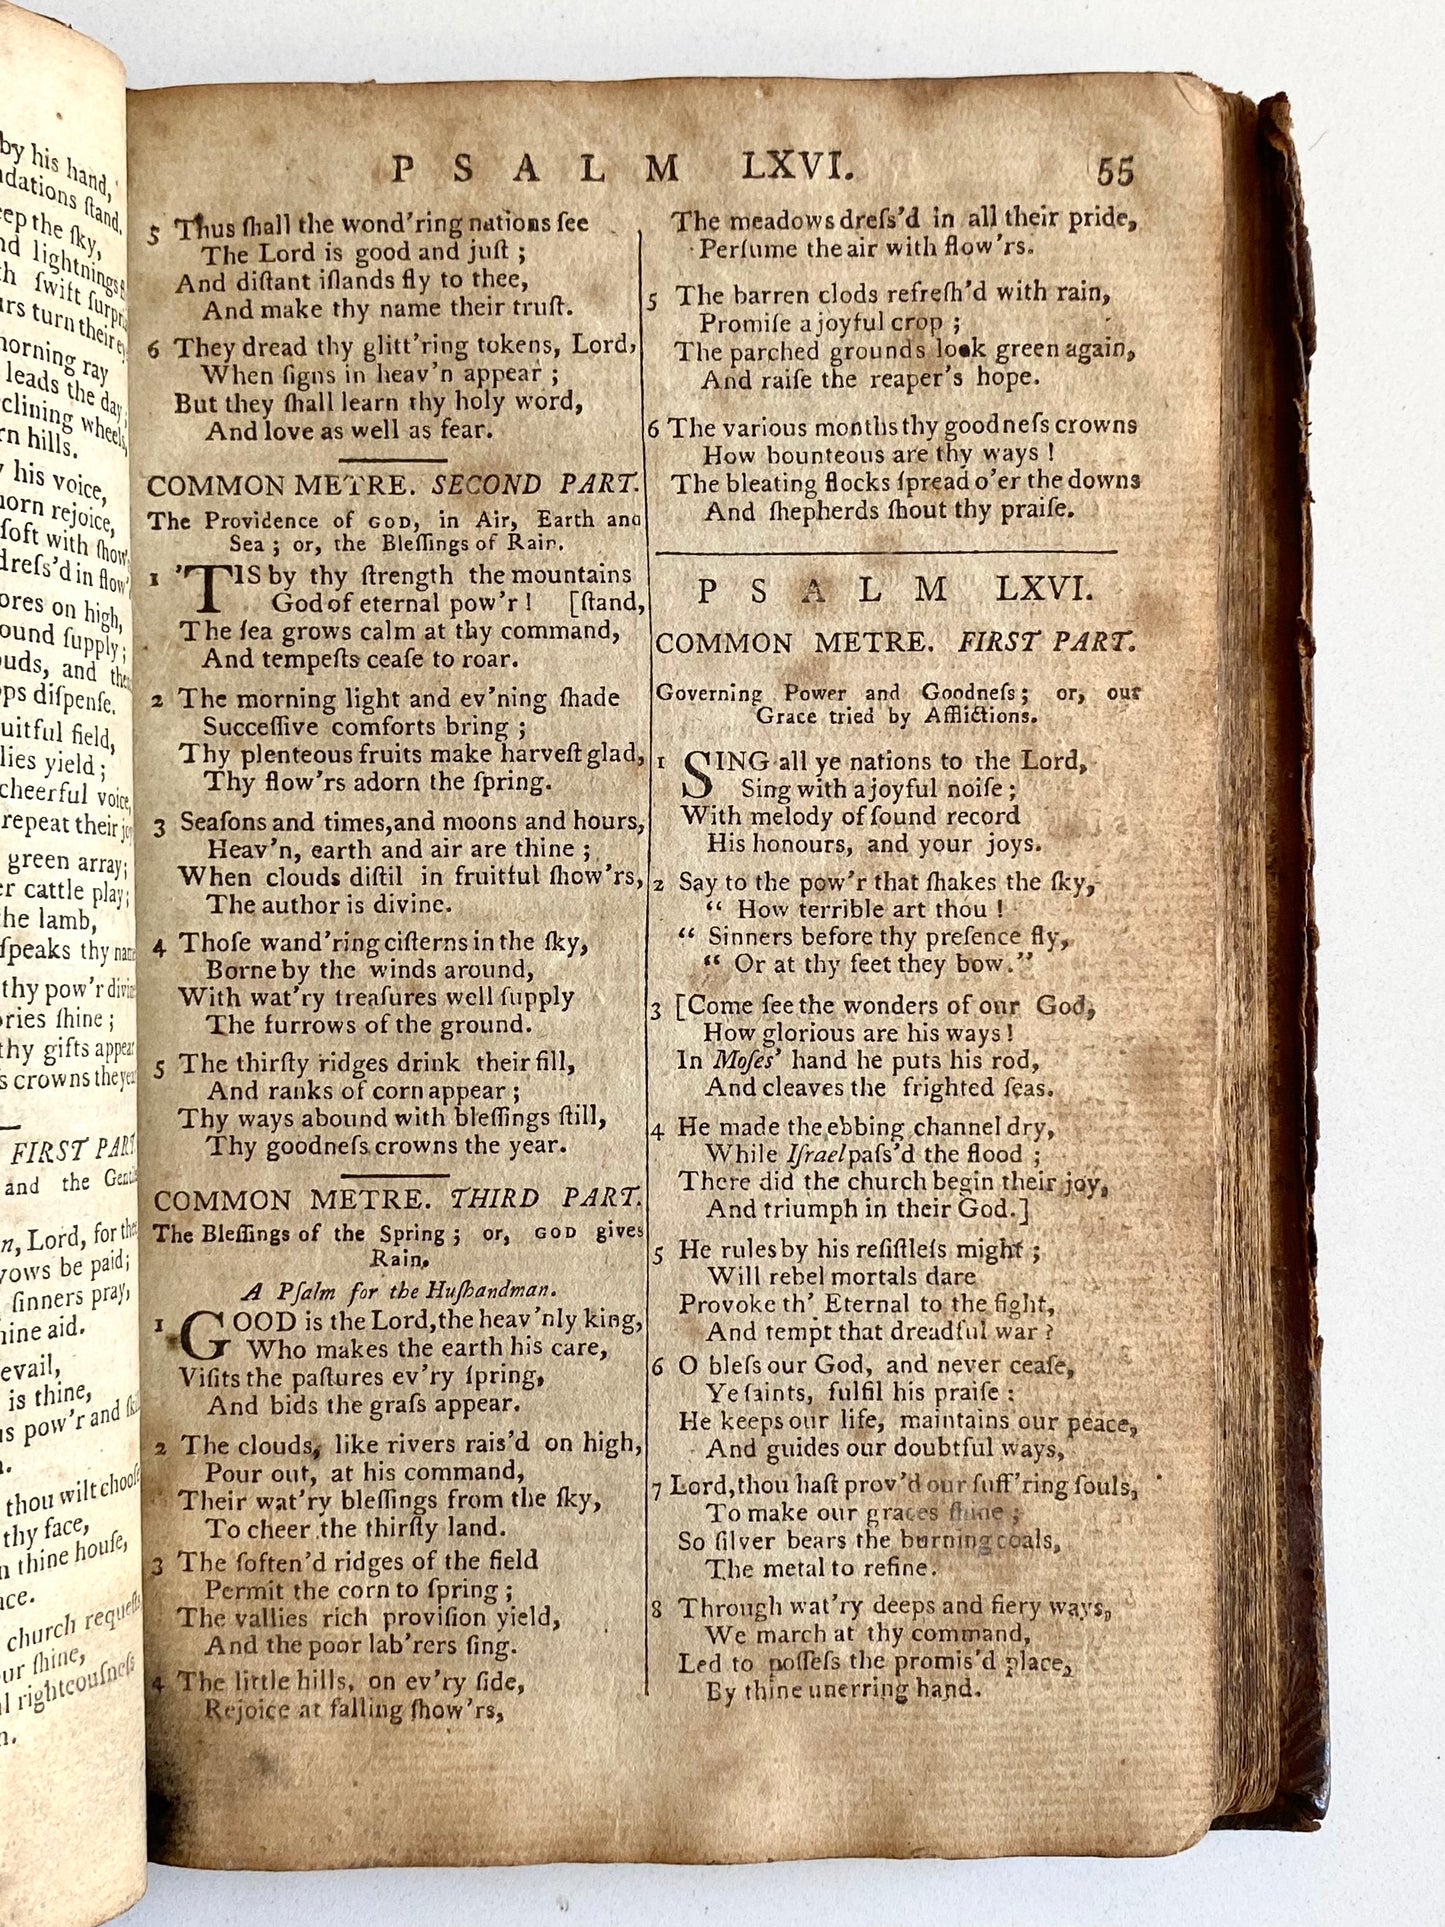 by his hand,
dations ſtand,
eep the ſky,
nd lightnings
th ſwift ſurpr
urs turn their
morning ray
leads the day
clining wheels,
rn hills.
his voice,
morn rejoice,
ſoft with ſhow
dreſs'd in flow'
ores on high,
ound ſupply;
ouds, and
ps diſpenſe.
uitful field,
lies yield;
cheerful voice,
repeat their
green array;
er cattle play;
the lamb,
ſpeaks thy
thy pow'r
ories ſhine;
thy gifts appear
s crowns the
FIRST PART
and the
n, Lord, for
vows be paid;
ſinners pray,
hine aid.
evail,
is thine,
us pow'r and
thou wilt chooſe
thy face,
n thine houſe,
ace.
church requeſts
our ſhine,
al righteouſneſs
n.
PSALM LXVI. 55
5 Thus ſhall the wond'ring nations ſee
The Lord is good and juſt;
And diſtant iſlands fly to thee,
And make thy name their truſt.
6 They dread thy glitt'ring tokens, Lord,
When ſigns in heav'n appear;
But they ſhall learn thy holy word,
And love as well as fear.
COMMON METRE. SECOND PART.
The Providence of GOD, in Air, Earth and
Sea; or, the Bleſſings of Rain.
1 'TIS by thy ſtrength the mountains
God of eternal pow'r! [ſtand,
The ſea grows calm at thy command,
And tempeſts ceaſe to roar.
2 The morning light and ev'ning ſhade
Succeſſive comforts bring;
Thy plenteous fruits make harveſt glad,
Thy flow'rs adorn the ſpring.
3 Seaſons and times, and moons and hours,
Heav'n, earth and air are thine;
When clouds diſtil in fruitful ſhow'rs,
The author is divine.
4 Thoſe wand'ring ciſterns in the ſky,
Borne by the winds around,
With wat'ry treaſures well ſupply
The furrows of the ground.
5 The thirſty ridges drink their fill,
And ranks of corn appear;
Thy ways abound with bleſſings ſtill,
Thy goodneſs crowns the year.
COMMON METRE. THIRD PART.
The Bleſſings of the Spring; or, GOD gives
Rain.
A Pſalm for the Huſbandman.
1 GOOD is the Lord, the heav'nly king,
Who makes the earth his care,
Viſits the paſtures ev'ry ſpring,
And bids the graſs appear.
2 The clouds, like rivers rais'd on high,
Pour out, at his command,
Their wat'ry bleſſings from the ſky,
To cheer the thirſty land.
3 The ſoften'd ridges of the field
Permit the corn to ſpring;
The vallies rich proviſion yield,
And the poor lab'rers ſing.
4 The little hills, on ev'ry ſide,
Rejoice at falling ſhow'rs,
The meadows dreſs'd in all their pride,
Perfume the air with flow'rs.
5 The barren clods refreſh'd with rain,
Promiſe a joyful crop;
The parched grounds look green again,
And raiſe the reaper's hope.
6 The various months thy goodneſs crowns
How bounteous are thy ways!
The bleating flocks ſpread o'er the downs
And ſhepherds ſhout thy praiſe.
PSALM LXVI.
COMMON METRE. FIRST PART.
Governing Power and Goodneſs; or, our
Grace tried by Afflictions.
1 SING all ye nations to the Lord,
Sing with a joyful noiſe;
With melody of ſound record
His honours, and your joys.
2 Say to the pow'r that ſhakes the ſky,
“ How terrible art thou!
“ Sinners before thy preſence fly,
“ Or at thy feet they bow.”
3 [Come ſee the wonders of our God,
How glorious are his ways!
In Moſes' hand he puts his rod,
And cleaves the frighted ſeas.
4 He made the ebbing channel dry,
While Iſrael paſs'd the flood;
There did the church begin their joy,
And triumph in their God.]
5 He rules by his reſiſtleſs might;
Will rebel mortals dare
Provoke th' Eternal to the fight,
And tempt that dreadful war?
6 O bleſs our God, and never ceaſe,
Ye ſaints, fulfil his praiſe:
He keeps our life, maintains our peace,
And guides our doubtful ways,
7 Lord, thou haſt prov'd our ſuff'ring ſouls,
To make our graces ſhine;
So ſilver bears the burning coals,
The metal to refine.
8 Through wat'ry deeps and fiery ways,
We march at thy command,
Led to poſſeſs the promis'd place,
By thine unerring hand.